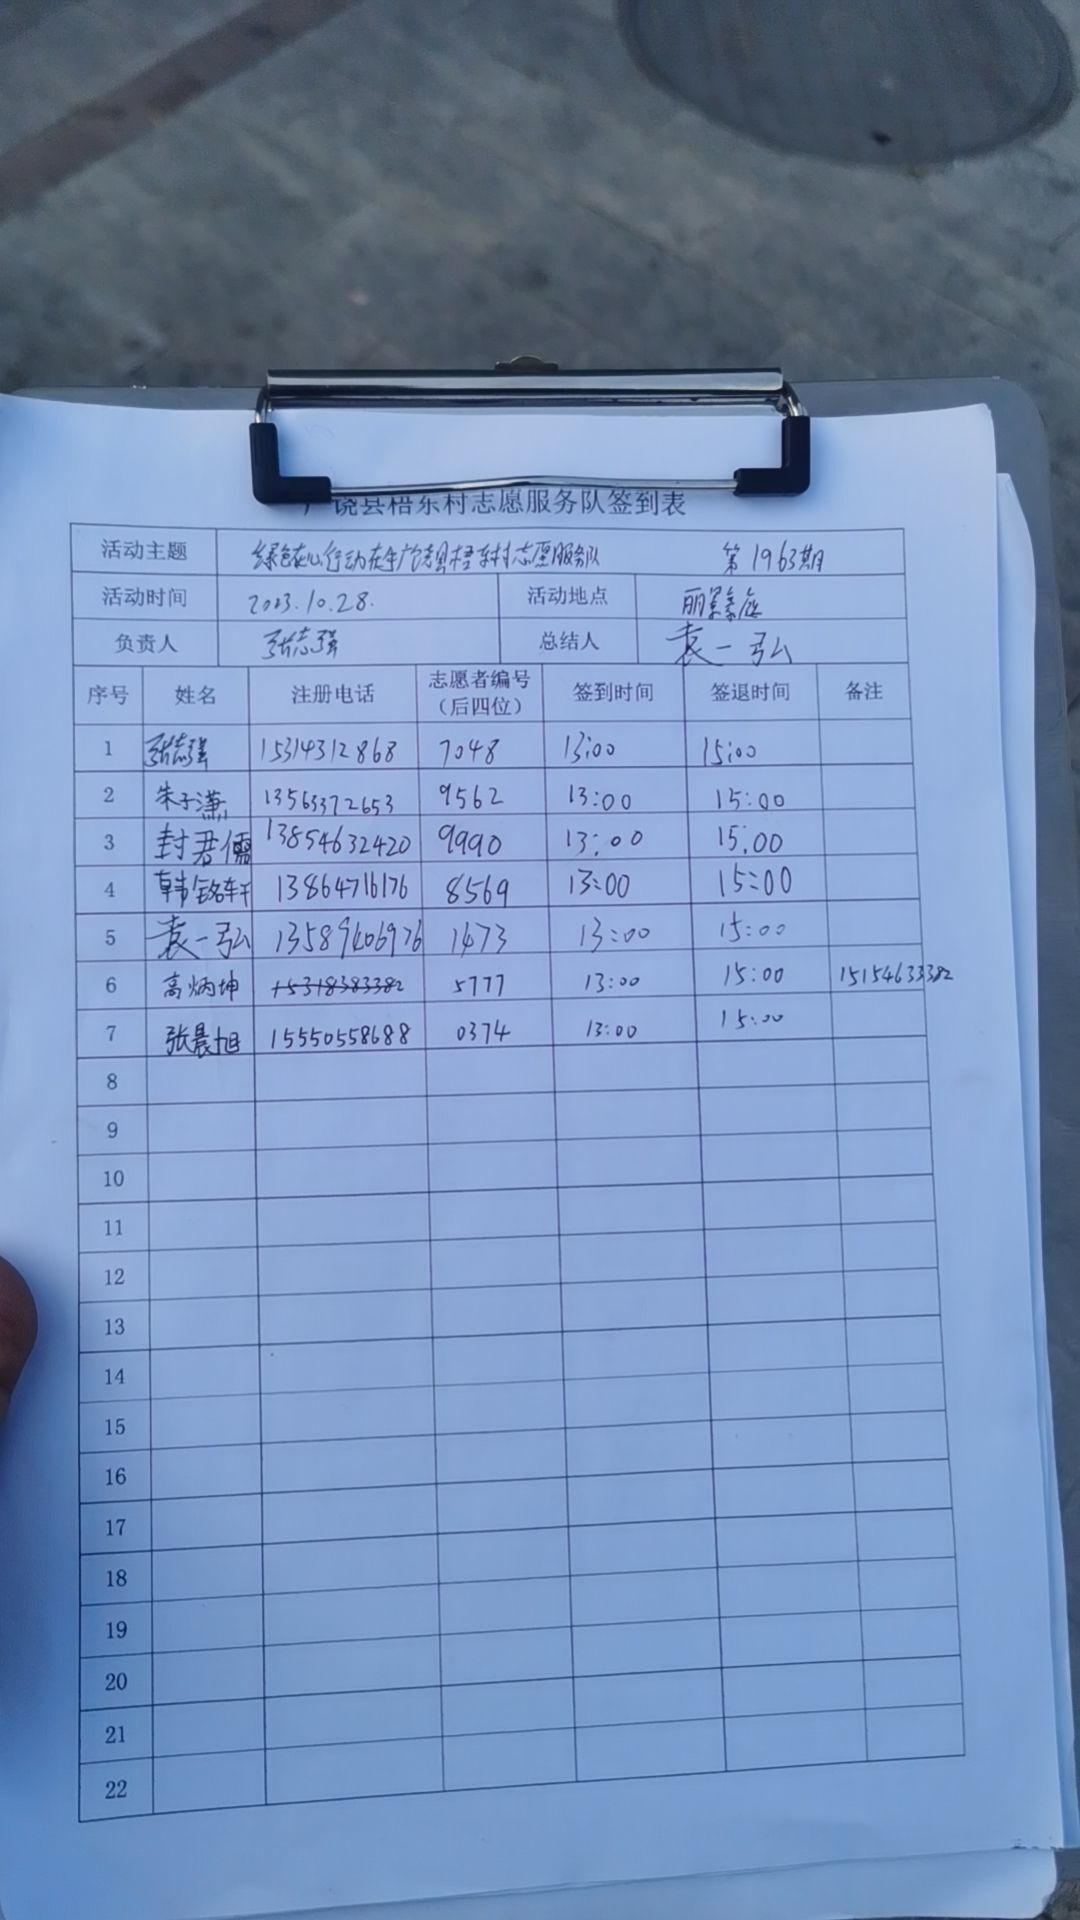 广饶县梧东村志愿服务队签到表
活动主题 绿色在心行动在手广饶县梧东村志愿服务队 第1963期
活动时间 2023.10.28. 活动地点 丽景
负责人 张志强 总结人 袁一弘
序号 姓名 注册电话 志愿者编号（后四位） 签到时间 签退时间 备注
1 张志强 15314312868 7048 13:00 15:00
2 朱子潇 13563372653 9562 13:00 15:00
3 封君儒 13854632420 9990 13:00 15:00
4 韩铭轩 13864716176 8569 13:00 15:00
5 袁一弘 13589406976 1473 13:00 15:00
6 高炳坤 15318383382 5777 13:00 15:00 15154633382
7 张晨旭 15550558688 0374 13:00 15:00
8
9
10
11
12
13
14
15
16
17
18
19
20
21
22